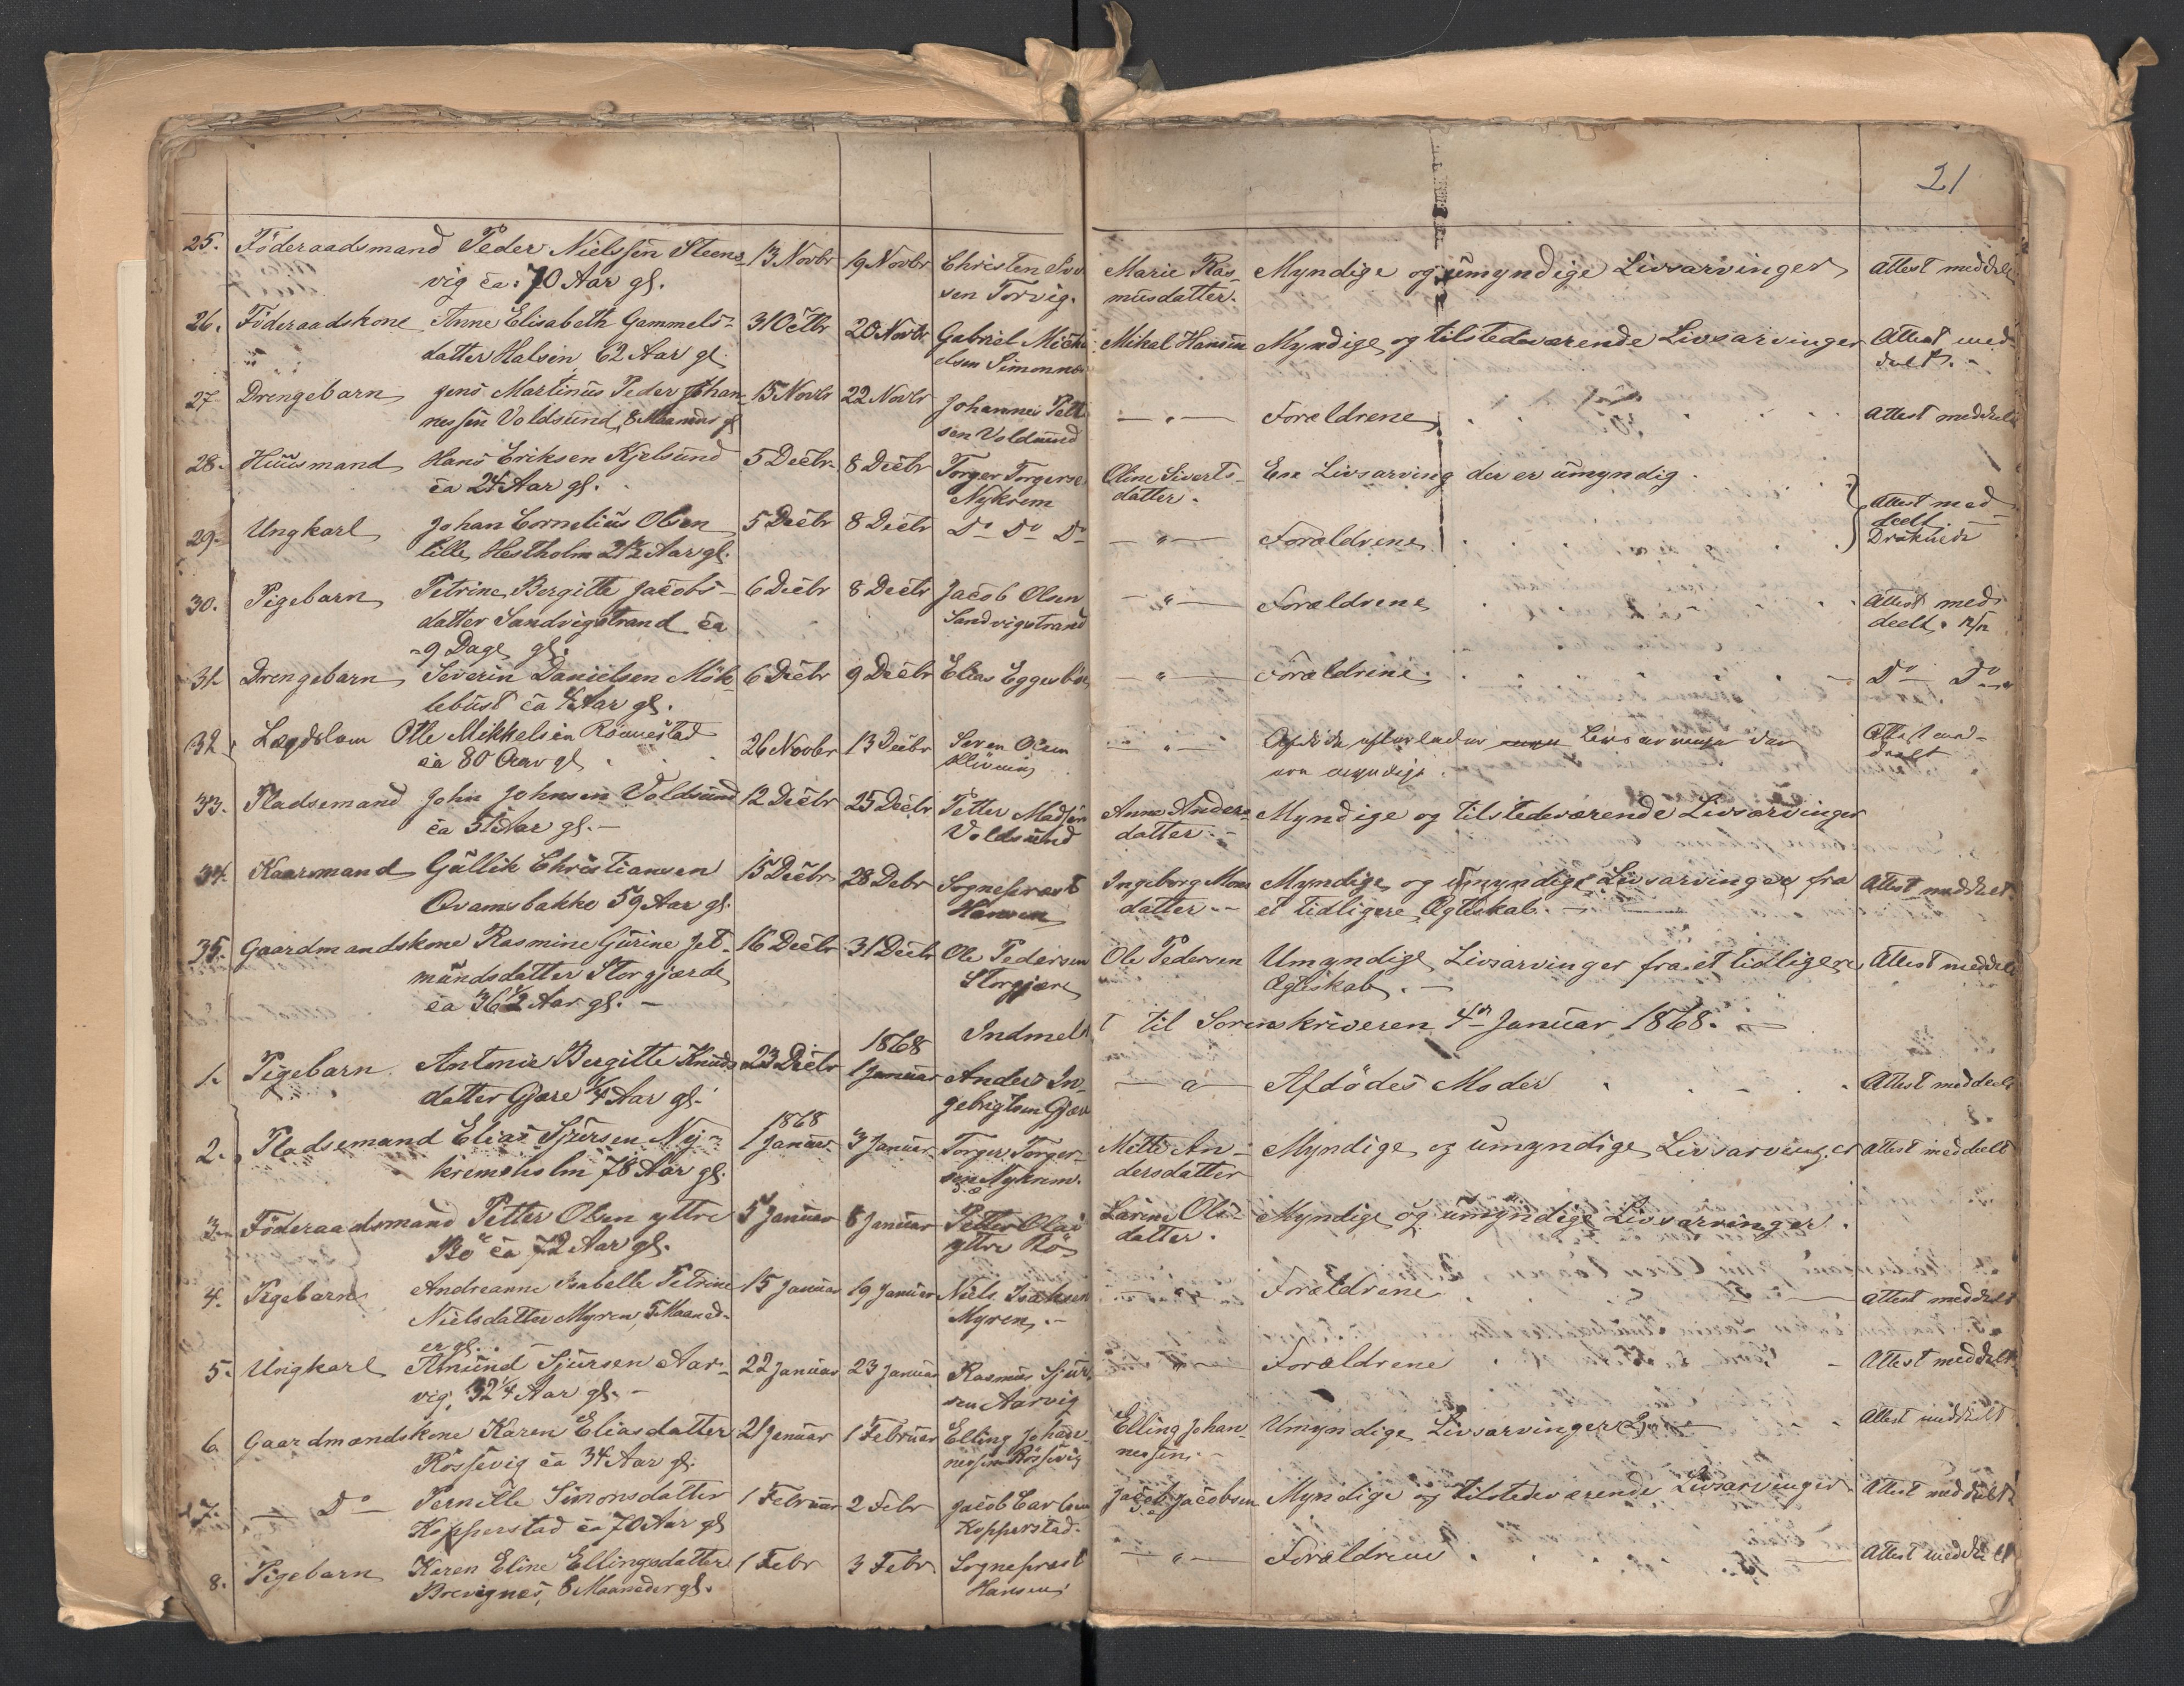 21
25. Föderaadsmand Peder Nielssen Steens- 13 Novbr 19 Novbr Christen Marie Ras- Myndige og umyndige Livsarvinger Attest meddelt
vig ca: 70 Aar gl. sen Torvig. musdatter.
26. Föderaadskone Anne Elisabeth Gammels- 31 Octbr 20 Novbr. Gabriel Mick- Mikal Hansen Myndige og tilstedeværende Livsarvinger Attest med-
datter Halsen, 62 Aar gl. elsen Simonnes delt. -
27 Drengebarn Jens Martinus Peder Johan- 15 Novbr 22 Novbr Johannes Pett - " - Forældrene Attest meddelt
nessen Voldsund, 8 Maaneds gl sen Voldsund
28. Huusmand Hans Eriksen Kjelsund 5 Decbr. 8 Decbr Torger Torgerse Oline Siverts- En Livsarving der er umyndig.
ca 24 Aar gl. Nykrem datter.
29. Ungkarl Johan Cornelius Olsen 5 Decbr 8 Decbr Do Do Do - " - Forældrene Attest med-
lille Hestholm 21½ Aar gl. deelt.
Druknede
30. Pigebarn Petrine Bergitte Jacobs- 6 Decbr 8 Decbr Jacob Olsen - " - Forældrene Attest med-
datter Sandvigstrand ca Sandvigstrand deelt. 12/12
9 Dage gl.
31. Drengebarn Severin Danielsen Mök- 6 Decbr 9 Decbr Elias Eggesbö - " - Forældrene. Do Do
lebust ca ¼ Aar gl.
32. Lægdslem Olle Mikkelsen Rönnestad 26 Novbr 13 Decbr Søren Olsen - " - Afdøde efterlader Livsarvinger der Attest med-
ca 80 Aar gl ere myndige. deelt
33. Pladsemand John Johnsen Voldsund 12 Decbr 25 Decbr Petter Madsen Anne Anders- Myndige og tilstedeværende Livsarvinger
ca 51 Aar gl. - Voldsund datter. -
34. Kaarmand Gullik Christiansen 15 Decbr. 28 Debr Sognepræst Ingeborg Mons Myndige og umyndige Livsarvinger fra Attest meddelt.
Qvamsbakke 59 Aar gl. Hansen datter. - et tidligere Ægteskab. -
35. Gaardmandskone Rasmine Gurine Jet- 16 Decbr 31 Decbr Ole Pedersen Ole Pedersen Umyndige Livsarvinger fra et tidligere Attest meddelt
mundsdatter Storgjærde Storgjære Ægteskab. -
ca 36½ Aar gl. -
Indmeldt til Sorenskriveren 4de Januar 1868. -
1868
1. Pigebarn Antonie Bergitte Knuds 23 Decbr 1 Januar Anders In- - " - Afdödes Moder Attest meddeelt
datter Gjære ¼ Aar gl. gebrigtsen Gjære
1868
2. Pladsemand Elias Sjursen Ny- 1 Januar 3 Januar Torger Torger- Mette An- Myndige og umyndige Livsarvinger Attest meddeelt
kremsholm 78 Aar gl. sen Nykrem. dersdatter
3. Föderaadsmand Petter Olsen yttre 5 Januar 8 Januar Petter Olai Larine Ols- Myndige og umyndige Livsarvinger.
Bö ca 72 Aar gl. yttre Bö datter.
4. Pigebarn Andreanne Isabelle Petrine 15 Januar 19 Januar Niels Isaksen - " - Forældrene Attest meddelt
Nielsdatter Myren, 5 Maaned- Myren. -
er gl.
5. Ungkarl Amund Sjursen Aar- 22 Januar 23 Januar Rasmus Sjur- - " - Forældrene Attest meddelt
vig, 32¼ Aar gl. - sen Aarvig
6. Gaardmandskone Karen Eliasdatter 21 Januar 1 Februar Elling Johan- Elling Johan- Umyndige Livsarvinger Attest meddelt
Rössevig ca 34 Aar gl. nessen Rössevig nessen.
7. - Do - Pernille Simonsdatter 1 Februar 2 Febr Jacob Carlsen Jacob Jacobsen Myndige og tilstedeværende Livsarvinger Attest meddelt
Kopperstad ca 70 Aar gl Kopperstad.
8. Pigebarn Karen Eline Ellingsdatter 1 Febr 3 Febr Sogneprest - " - Forældrene Attest meddelt
Brevignes, 8 Maaneder gl. Hansen